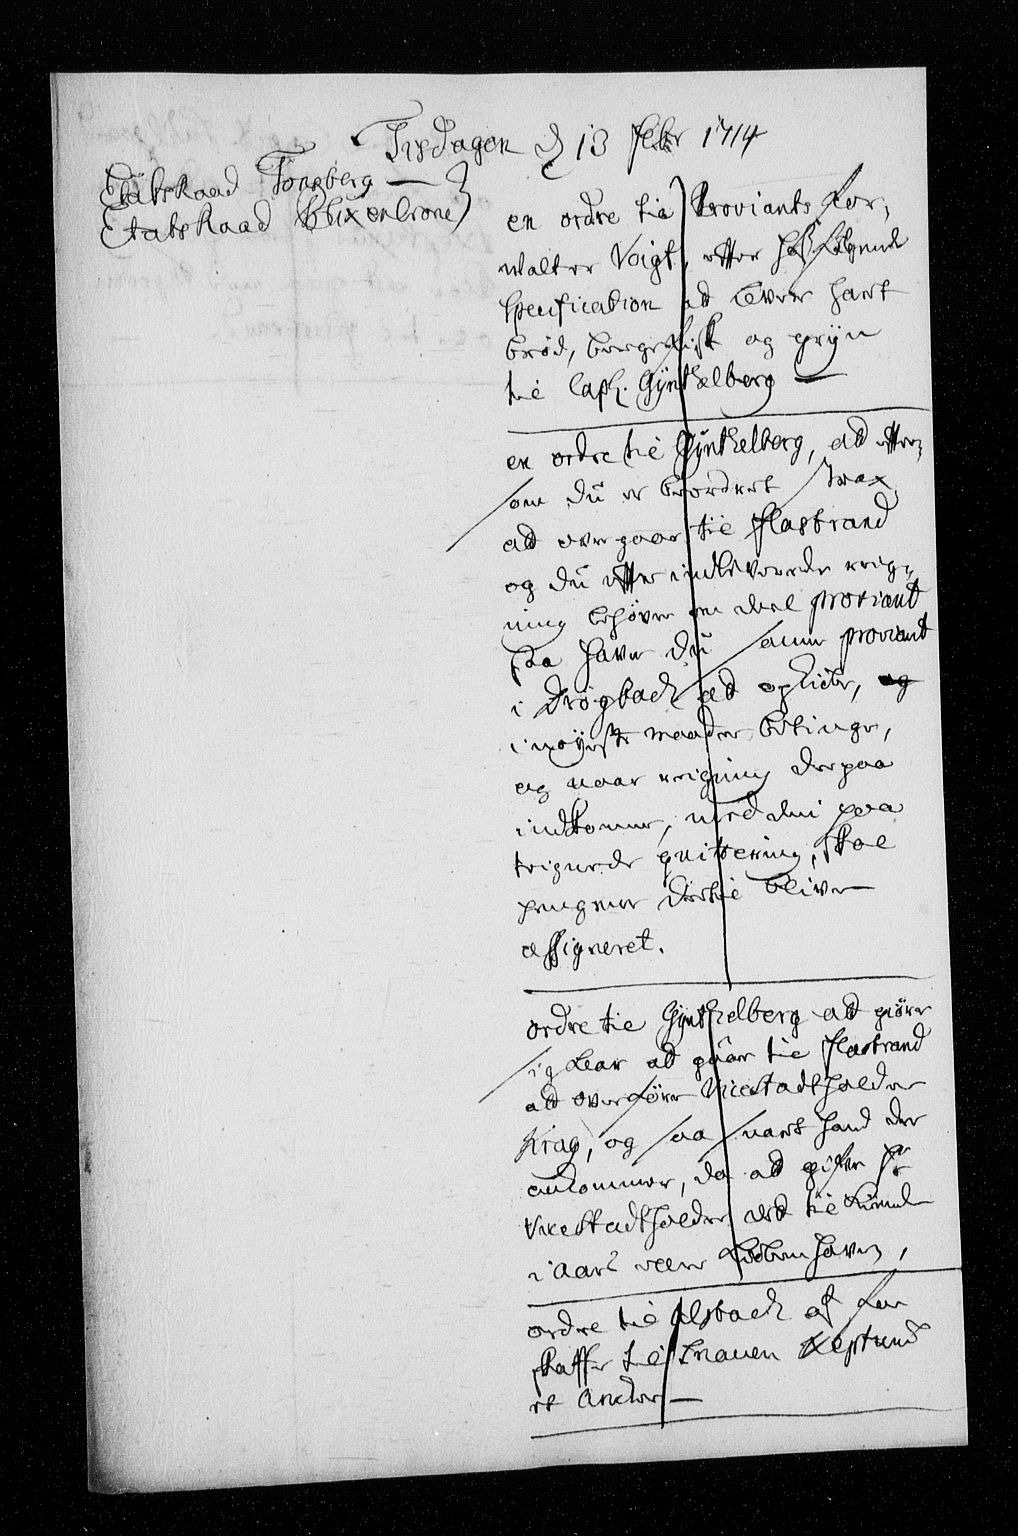 Tisdagen d 13 Febr 1714
Etatsraad Tonsberg
Etatsraad Blixencrone
en ordre til Proviants For,
walter Voigt, efter hosfölgende
Specification at lever hart
brød, bergefisk og gryn
til Capt. Gyntelberg
en ordre til Gynthelberg, ad efter,
som du er beordret strax
ad overgaae til Flastrand
og du efter indleverede reig,
ning behøver en deel proviant
saa haver du samme proviant
i Drøgback ad opkiøbe, og
i nøyeste maader betinge,
og naar reigning derpaa
indkommer, med dini paa
teignede quittering, skal
pengene dertil bliver
assigneret.
ordre til Gynthelberg ad giøre
sig klar ad gaae til Flastrand
ad overføre Vicestadtholder
Krag, og saa snart hand der
ankommer, da ad gifve hr
Vicestadtholder ved til kiende
i Aars eller Kiøbenhaven,
ordre til Alsback at for
skaffe til Snauen Neptunus
et Ancker